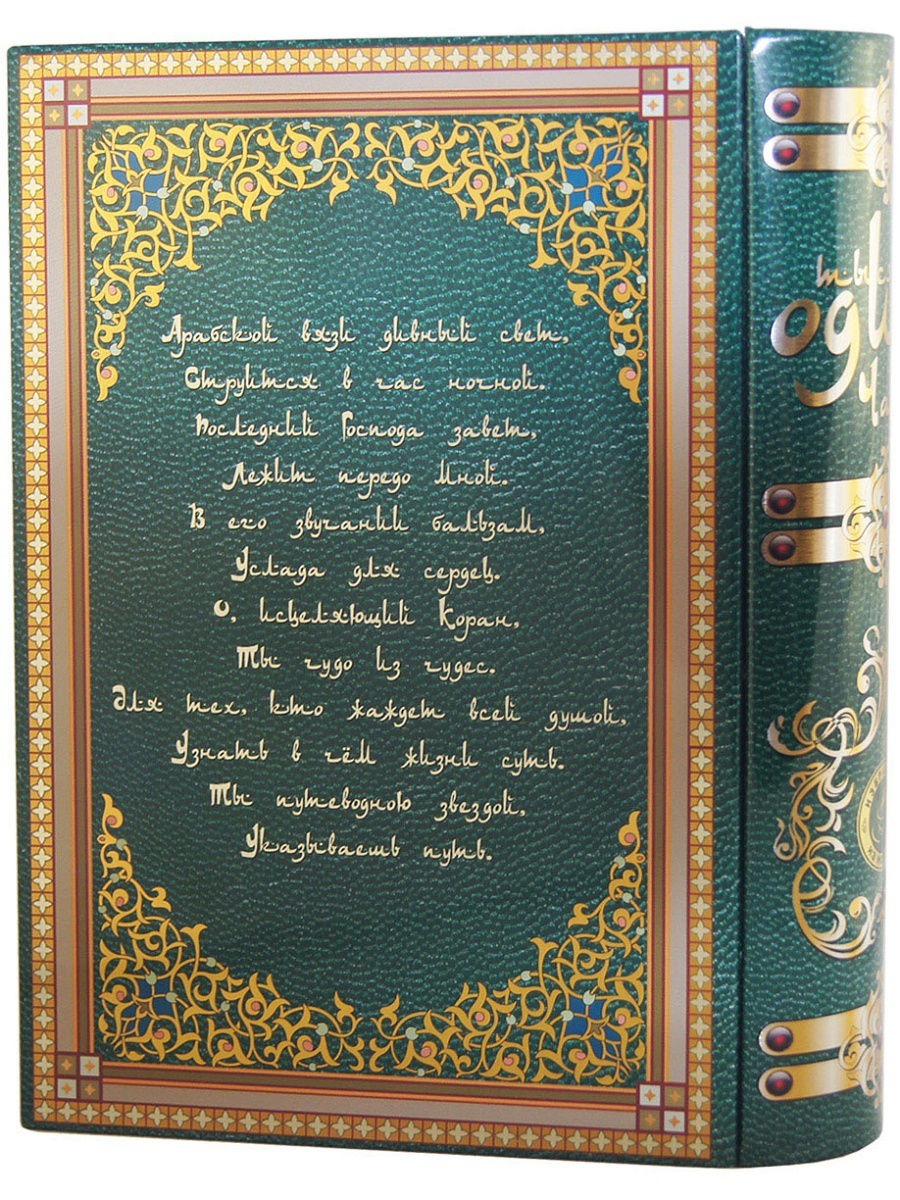 Арабской вязи дивный свет,
Струится в час ночной.
Последний Господа завет,
Лежит передо Мной.
В его звучании бальзам,
Услада для сердец.
О, исцеляющий Коран,
Ты чудо Из чудес.
Для тех, кто жаждет всей душой,
Узнать в чём жизни суть.
Ты путеводною звездой,
Указываешь путь.